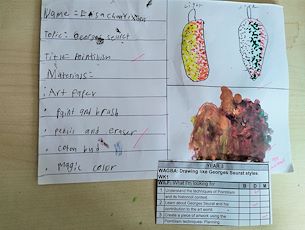 Name =
Totic: Georges Seurat
Title: Pointilism
Materials:
• Art Paper
• paint and brush
• pencil and eraser
• coton bud
• magic color
YEAR
WAGBA: Drawing like Georges Seurat styles.
WK1
WILF: What I'm looking for B D M
1 Understand the techniques of Pointilism and its historical context.
2 Learn about Georges Seurat and his contribution to the art world.
3 Create a piece of artwork using the Pointilism techniques. Planning